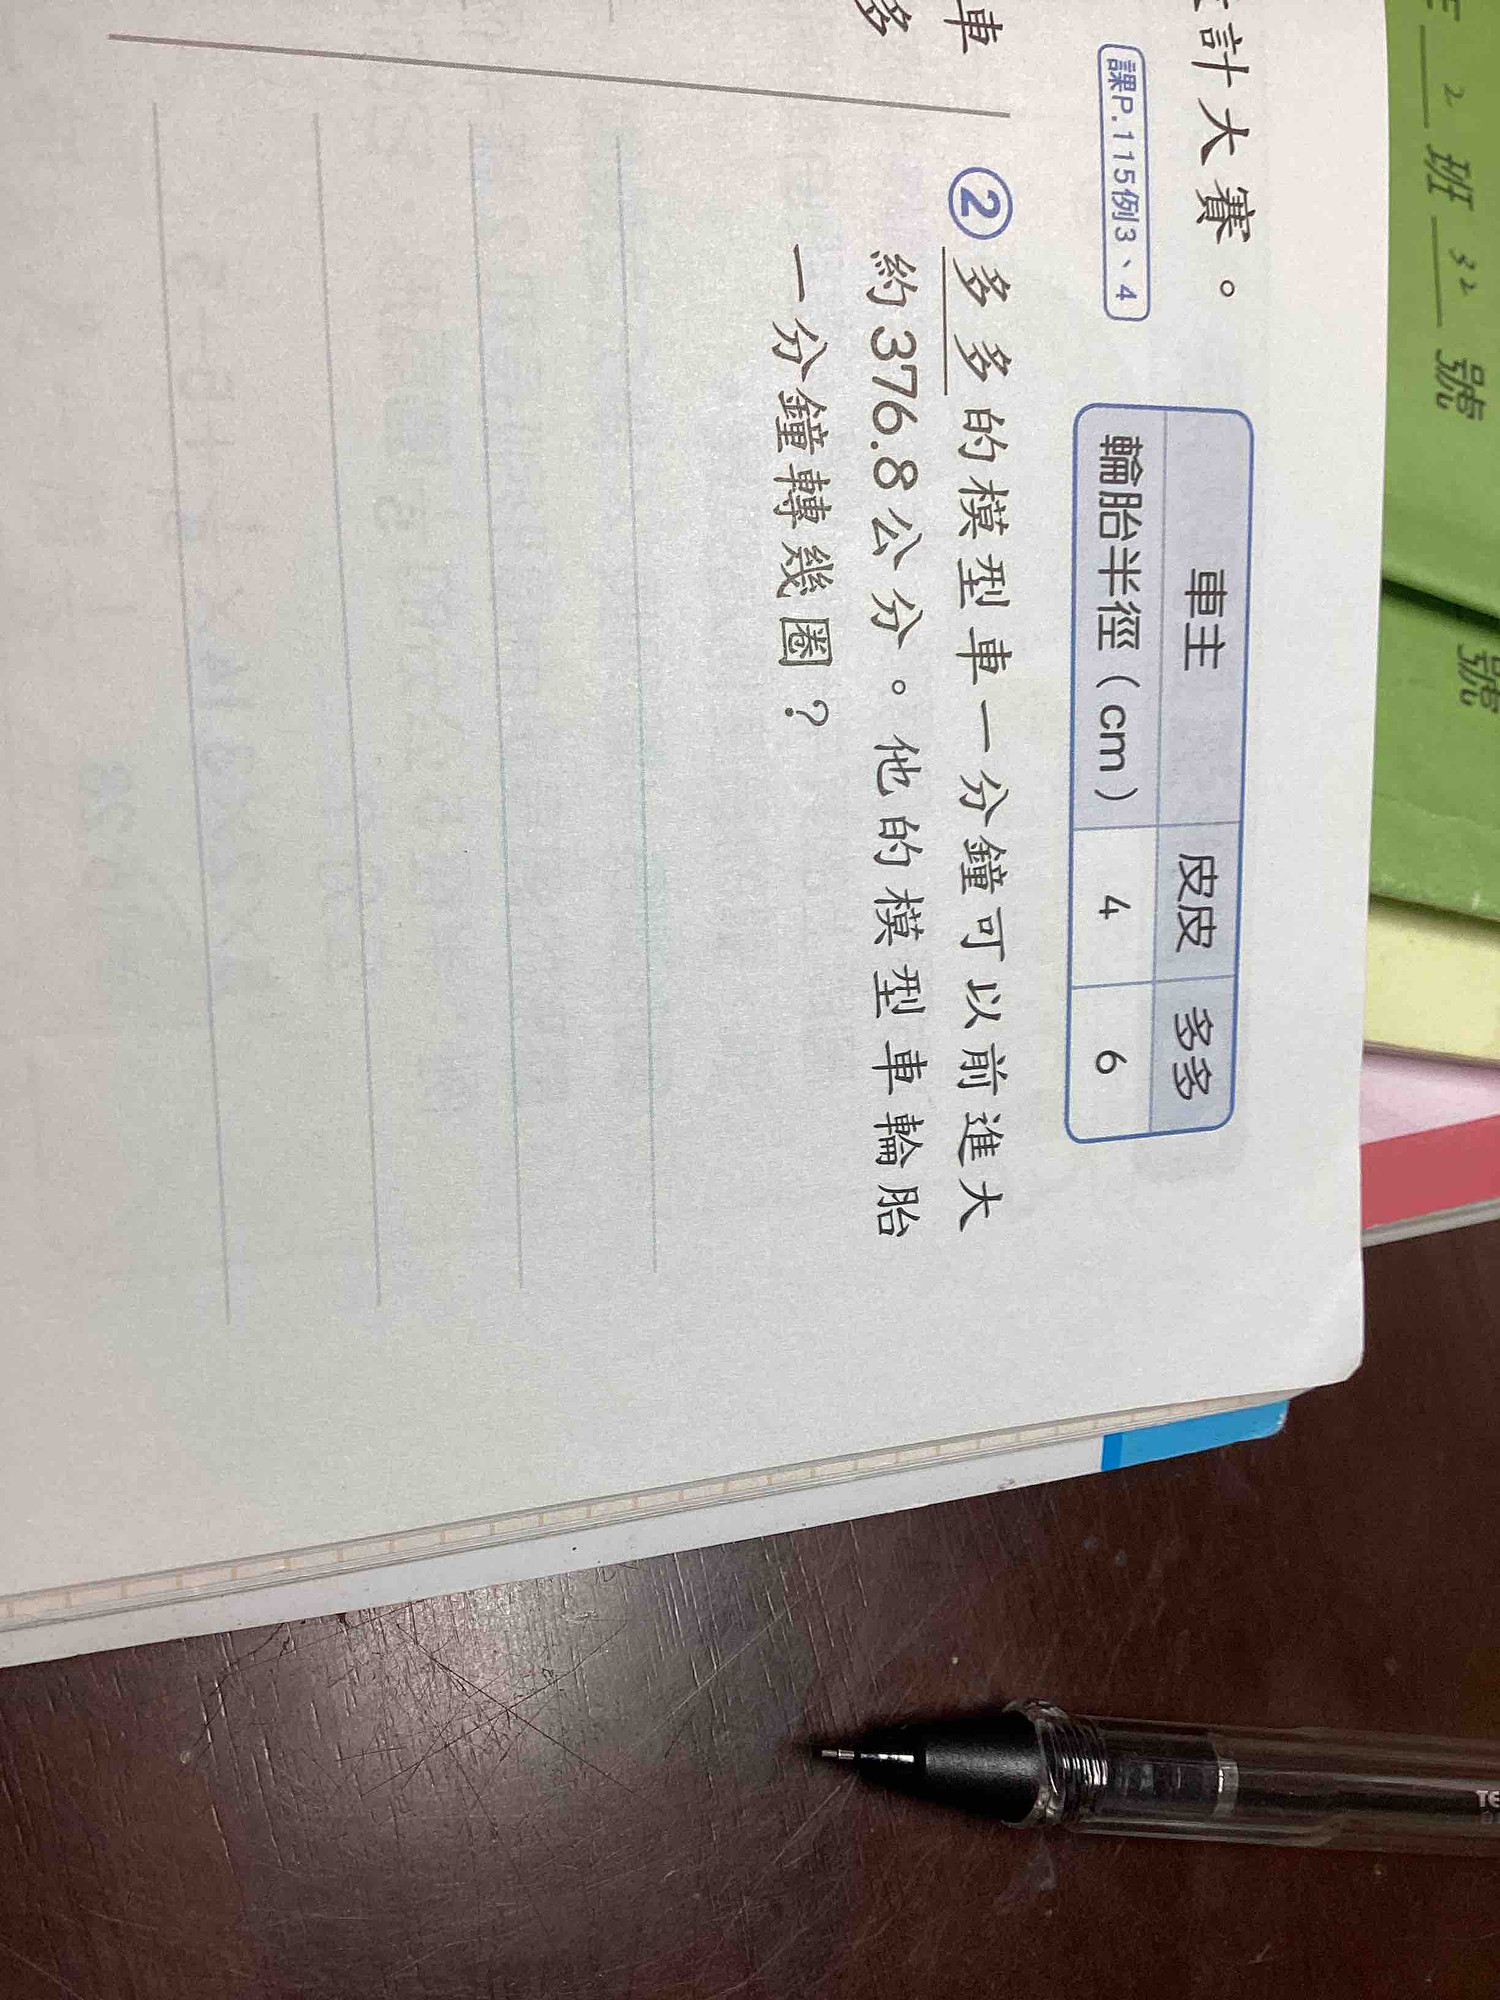 計大賽。
課P.115例3、4
車主 皮皮 多多
輪胎半徑(cm) 4 6
② 多多的模型車一分鐘可以前進大
約376.8公分。他的模型車輪胎
一分鐘轉幾圈？
車
多
2 班 32 號
號
TE